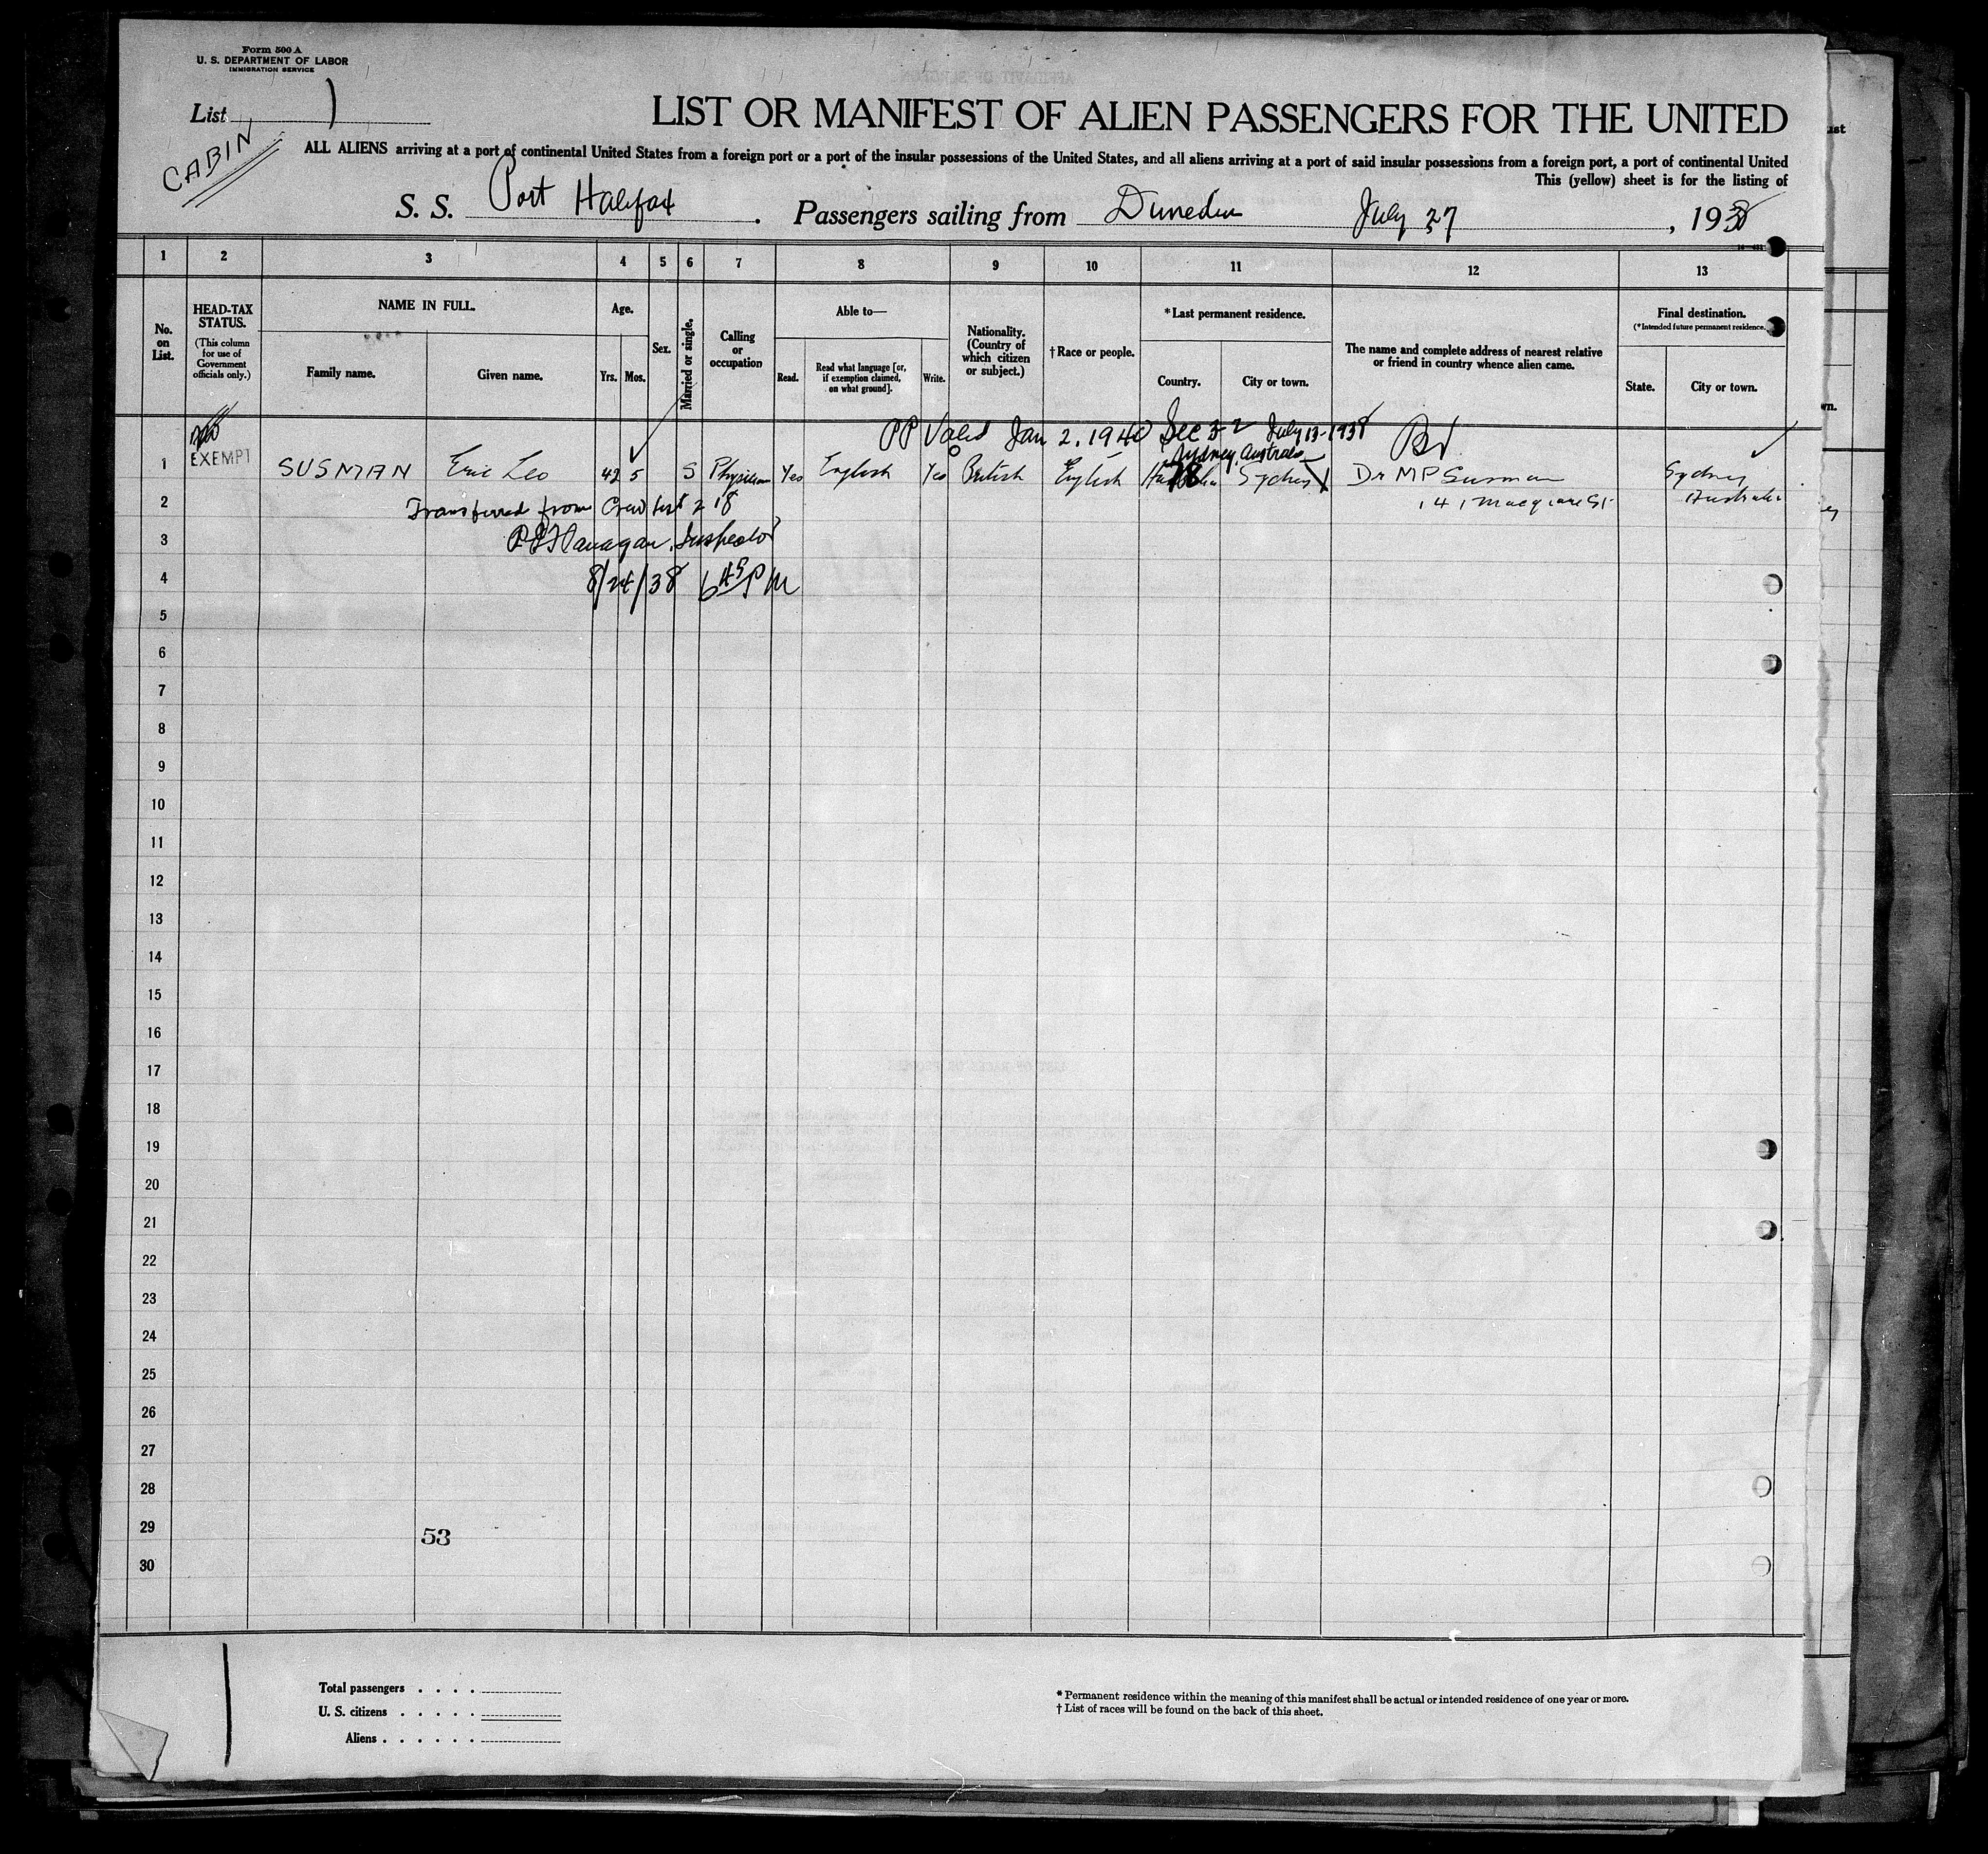 Form 500 A
U. S. DEPARTMENT OF LABOR
IMMIGRATION SERVICE
List 1
CABIN
LIST OR MANIFEST OF ALIEN PASSENGERS FOR THE UNITED
ALL ALIENS arriving at a port of continental United States from a foreign port or a port of the insular possessions of the United States, and all aliens arriving at a port of said insular possessions from a foreign port, a port of continental United
This (yellow) sheet is for the listing of
S. S. Port Halifax . Passengers sailing from Dunedin July 27, 1938
1 2 3 4 5 6 7 8 9 10 11 12 13
No. on List.
HEAD-TAX STATUS.
(This column for use of Government officials only.)
NAME IN FULL.
Family name. Given name.
Age.
Yrs. Mos.
Sex.
Married or single.
Calling or occupation
Able to—
Read. Read what language [or, if exemption claimed, on what ground]. Write.
Nationality. (Country of which citizen or subject.)
† Race or people.
* Last permanent residence.
Country. City or town.
The name and complete address of nearest relative or friend in country whence alien came.
Final destination.
(* Intended future permanent residence.)
State. City or town.
PP Valid Jan 2, 1940 Sec 3-2 July 13-1938
Sydney, Australia
1 EXEMPT SUSMAN Eric Leo 42 5 S Physician Yes English Yes British English 78 Sydney Dr MP Susman Sydney
2 Transferred from Crew list 218 141 Macquarie St Australia
3 Flanagan, Inspector
4 8/24/38 6 45 PM
5
6
7
8
9
10
11
12
13
14
15
16
17
18
19
20
21
22
23
24
25
26
27
28
29
53
30
Total passengers . . . .
U. S. citizens . . . . .
Aliens . . . . . .
* Permanent residence within the meaning of this manifest shall be actual or intended residence of one year or more.
† List of races will be found on the back of this sheet.